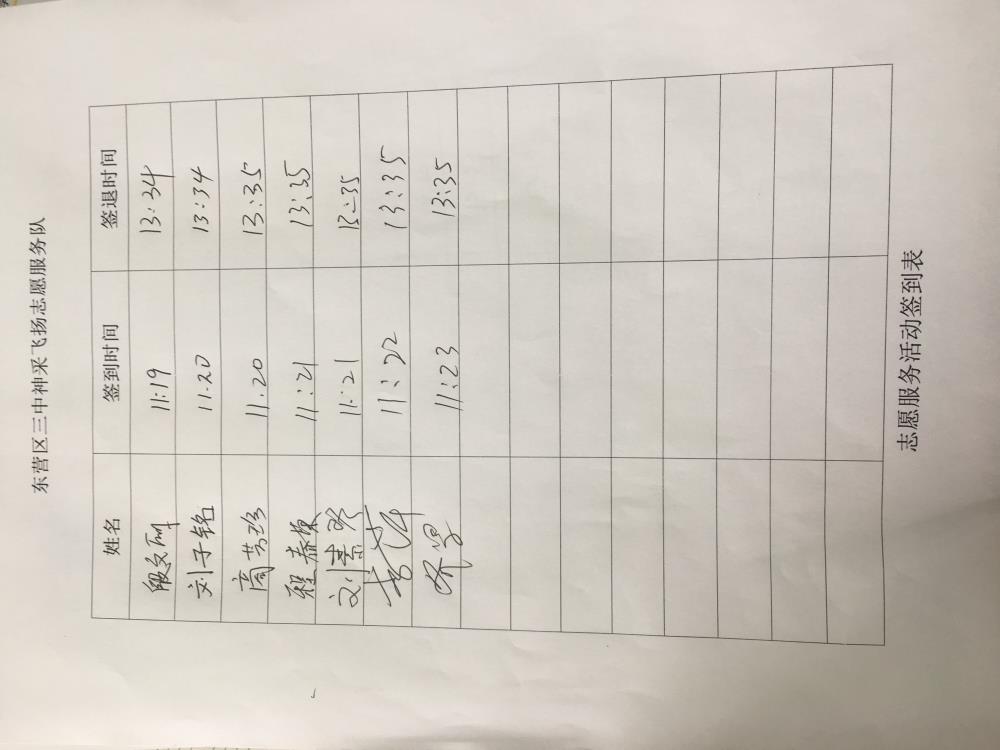 东营区三中神采飞扬志愿服务队
姓名 签到时间 签退时间
11:19 13:34
刘子铭 11:20 13:34
高芸珍 11:20 13:35
程春梅 11:21 13:35
刘素 11:21 13:35
11:22 13:35
11:23 13:35
志愿服务活动签到表